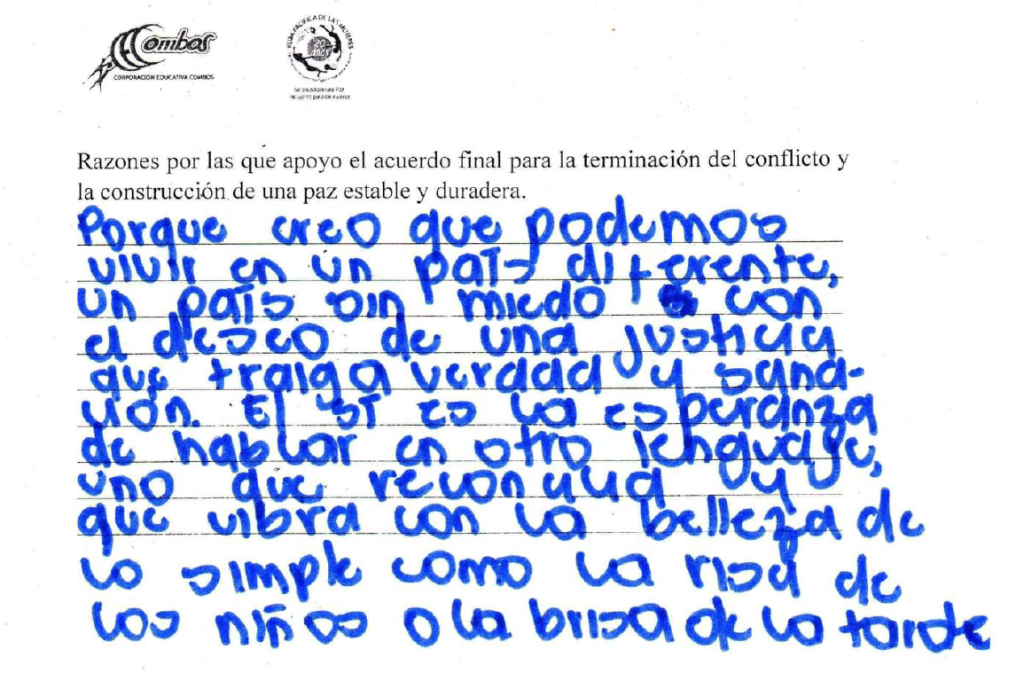 Combos
CORPORACIÓN EDUCATIVA COMBOS
RUTA PACÍFICA DE LAS MUJERES
20 años
Razones por las que apoyo el acuerdo final para la terminación del conflicto y
la construcción de una paz estable y duradera.
Porque creo que podemos
vivir en un país diferente,
un país sin miedo con
el deseo de una justicia
que traiga verdad y sana-
ción. El sí es la esperanza
de hablar en otro lenguaje,
uno que
que vibra con la belleza de
lo simple como la risa de
los niños o la brisa de la tarde